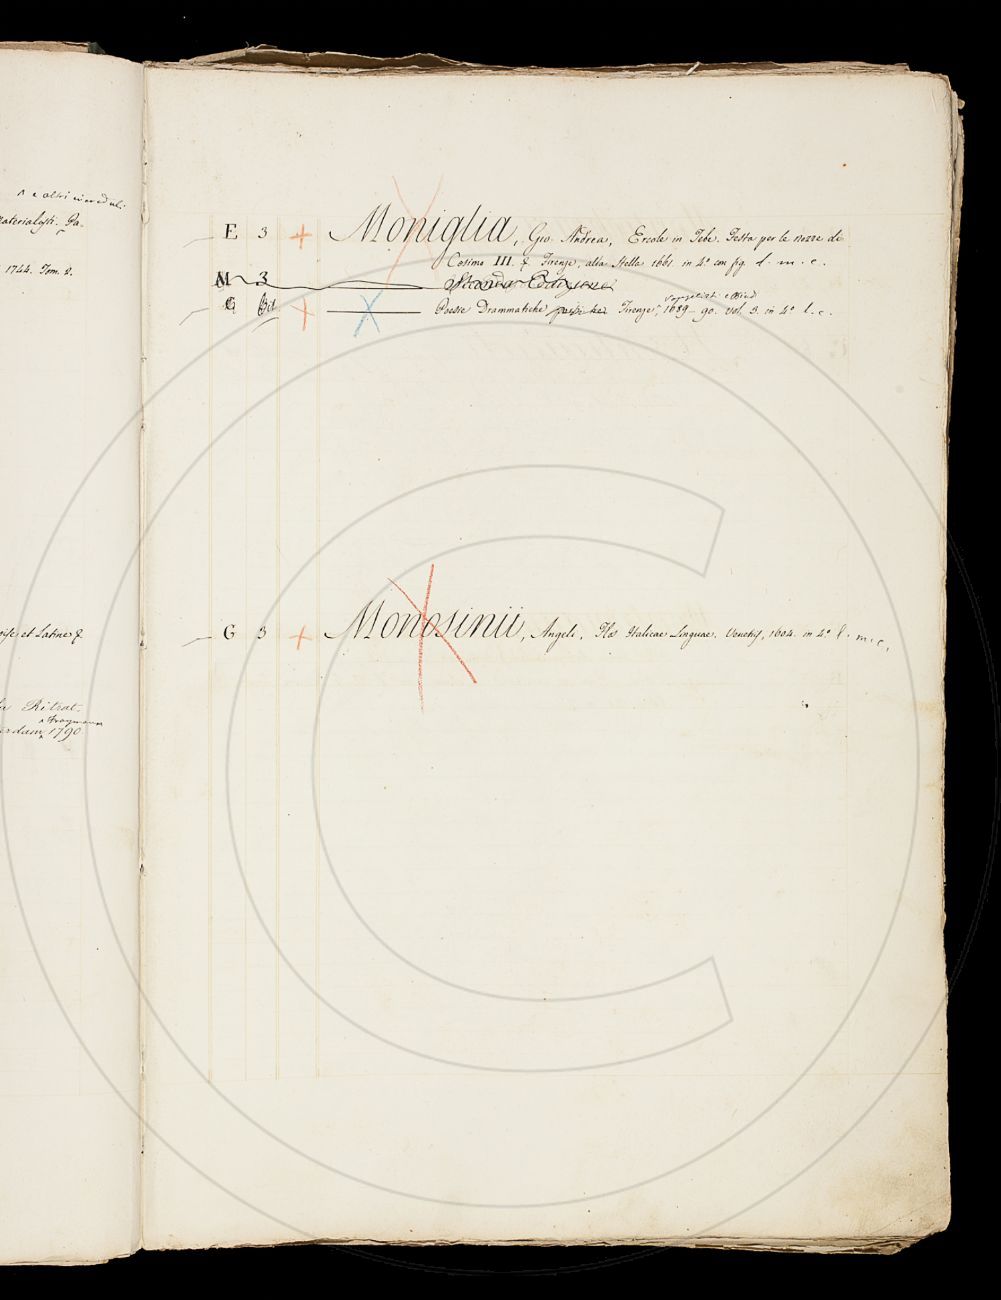 e altri increduli
materialisti. Pa.
1744. Tom. 2.
et Latine &
Ritrat.
1790
E 3 + Moniglia, Gio. Andrea, Ercole in Tebe. Festa per le nozze di
Cosimo III. & Firenze, alla Stella 1661. in 4.º con fig. l. m. c.
M 3 Seconda Edizione
G + Poesie Drammatiche Firenze, 1689-90. vol. 3. in 4.º l. c.
G 3 + Monosinii, Angeli, Flos Italicae Linguae. Venetijs, 1604. in 4.º l. m. c.